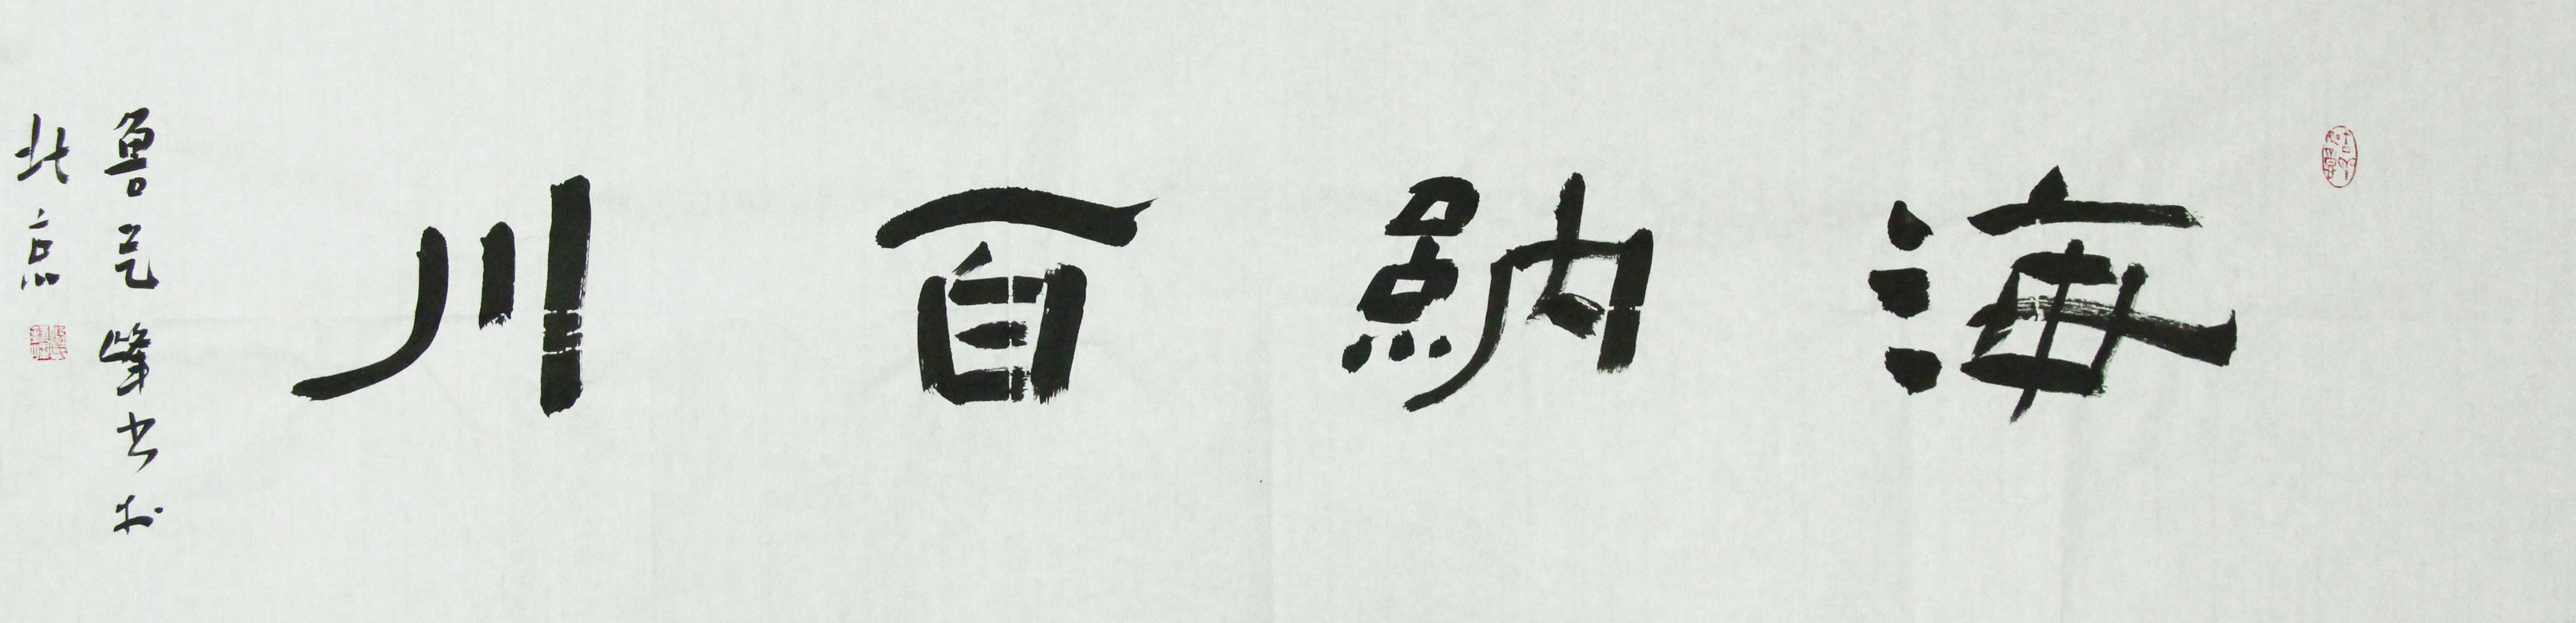 海納百川
魯元峰书於
北京